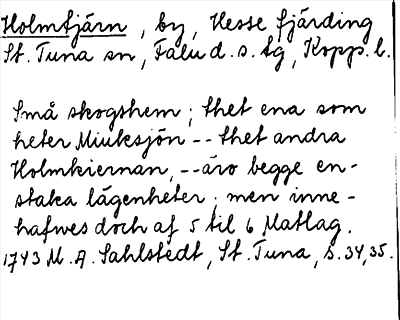 Holmtjärn, by, Hesse fjärding
St. Tuna sn, Falu d. s. tg, Kopp. l.
Små skogshem; thet ena som
heter Miuksjön -- thet andra
Holmkiernan, -- äro begge en-
staka lägenheter; men inne-
hafwes doch af 5 til 6 Matlag.
1743 M. A. Sahlstedt, St. Tuna, s. 34, 35.